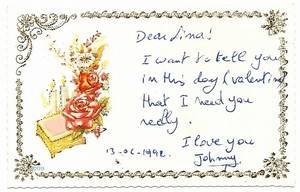 Dear Lina!
I want to tell you
in this day (valentin
that I need you
really.
I love you
13-06-1992. Johnny